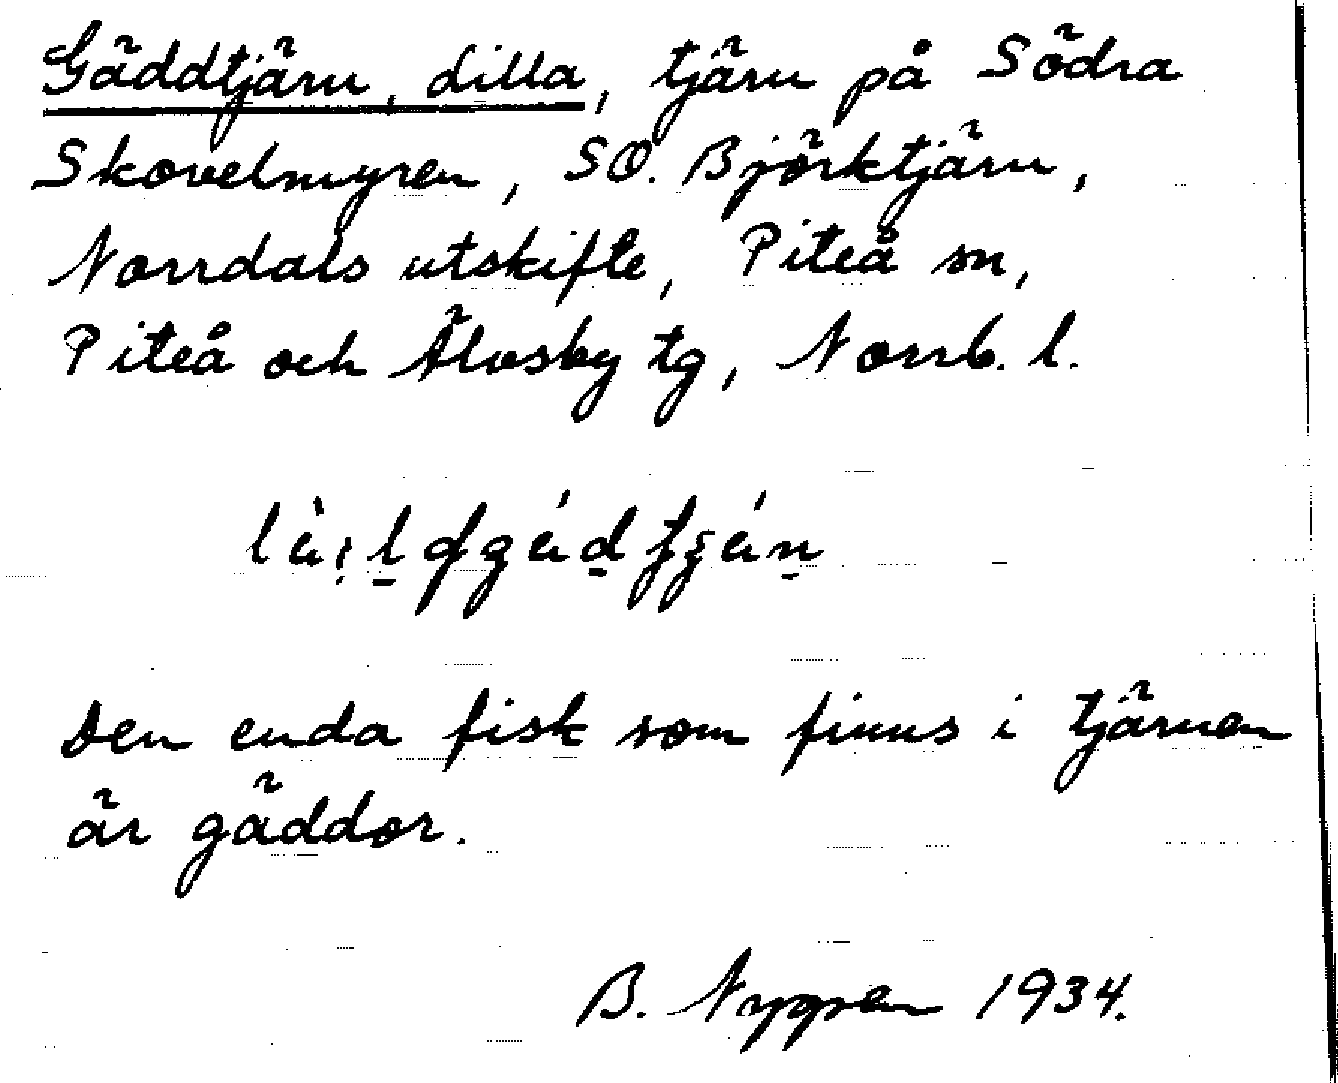 Gäddtjärn, Lilla, tjärn på Södra
Skovelmyren, SO. Björktjärn,
Norrdals utskifte, Piteå sn,
Piteå och Älvsby tg, Norrb. l.
Den enda fisk som finns i tjärnen
är gäddor.
B. Nygren 1934.